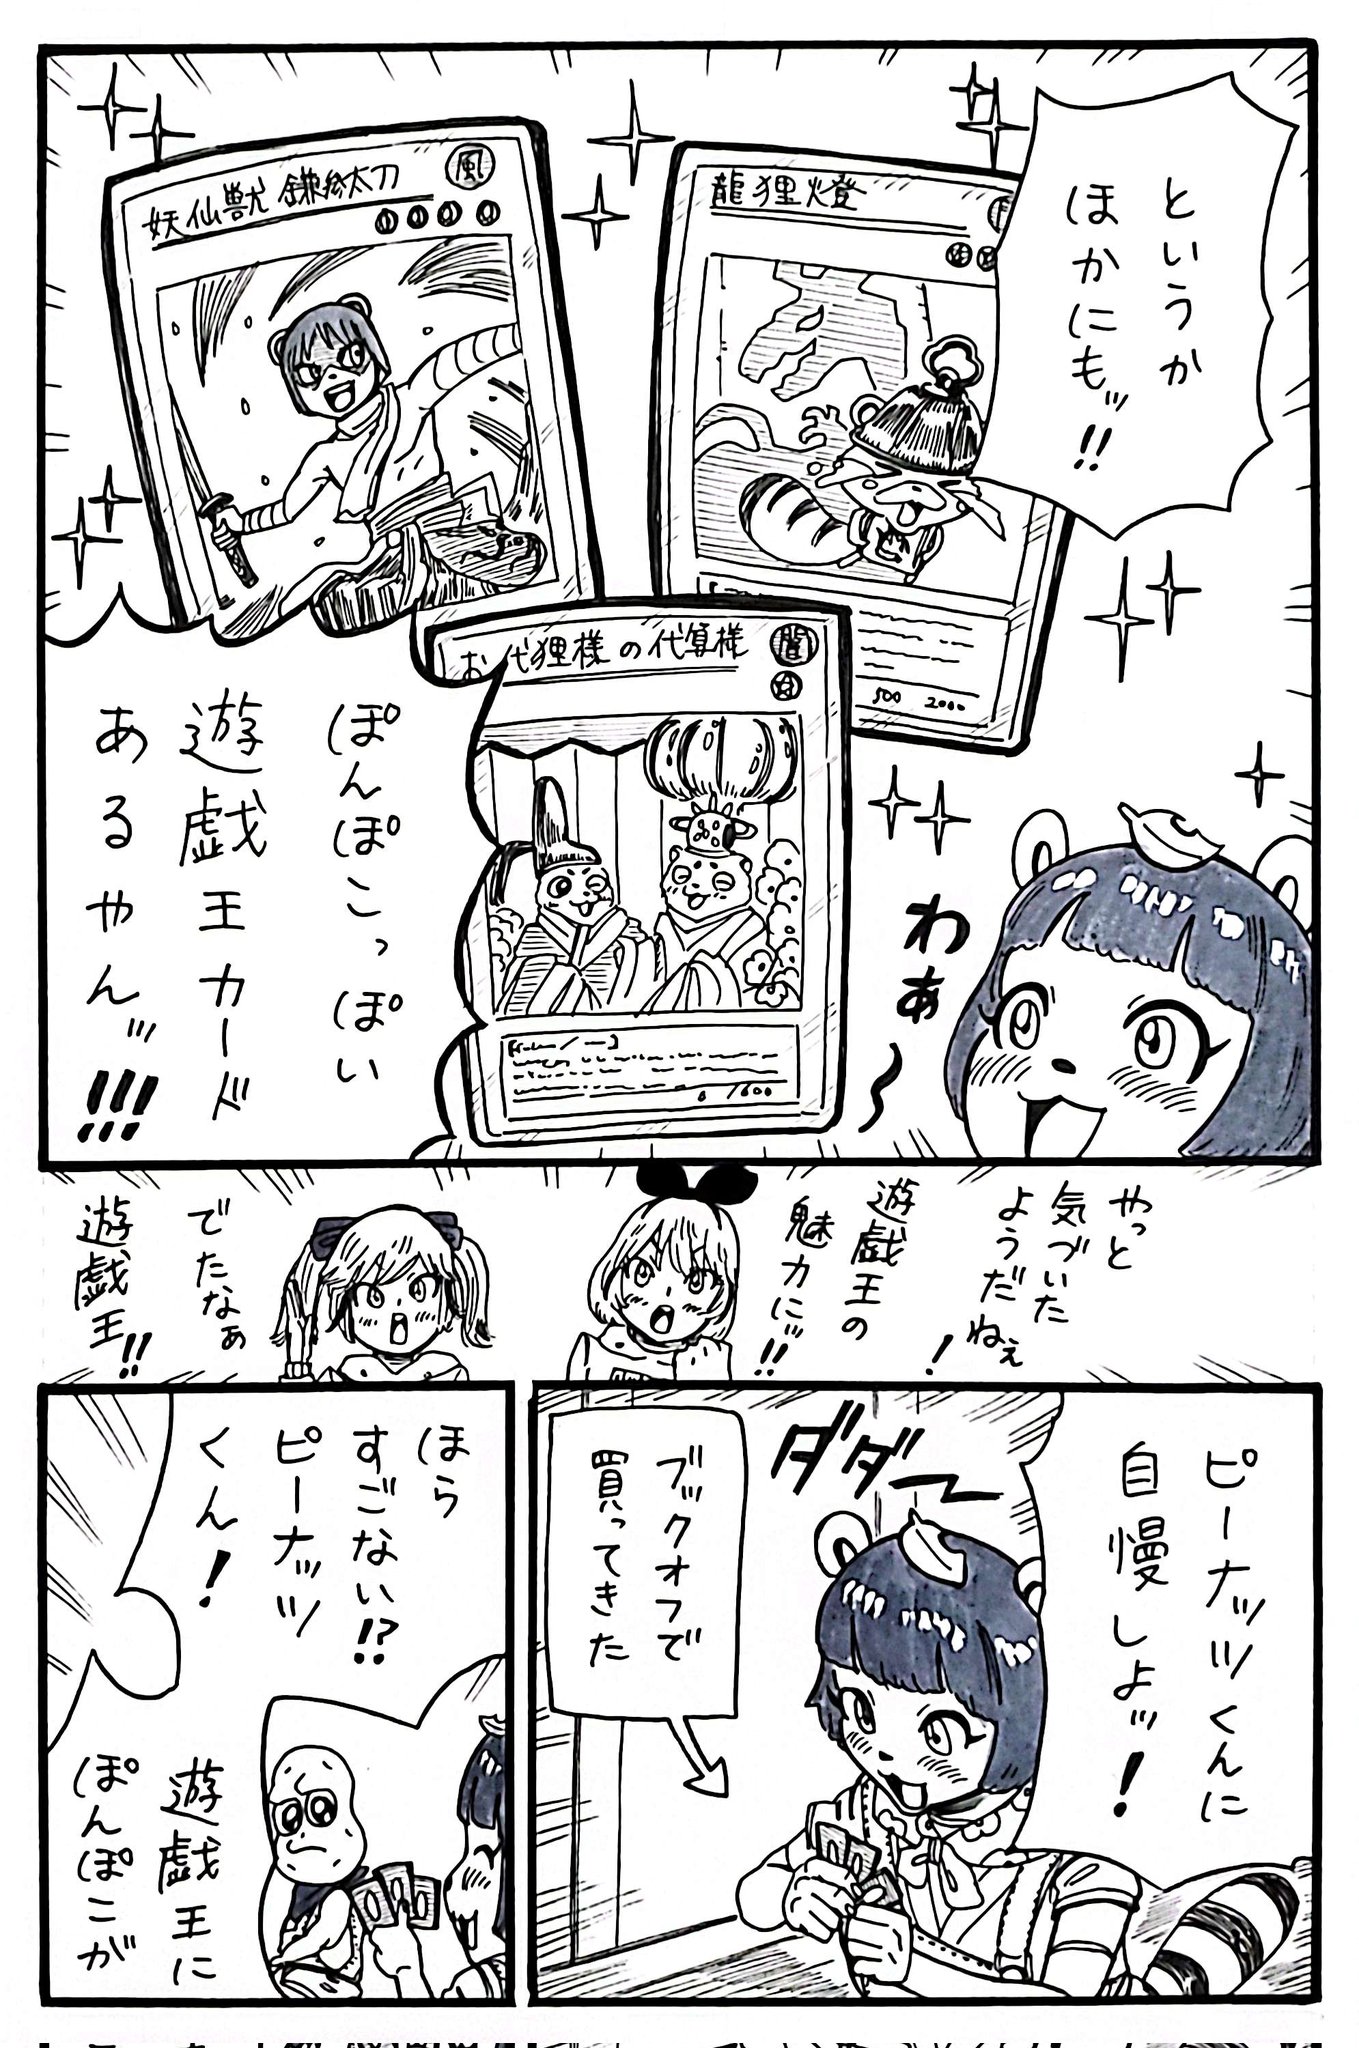 というか
ほかにもッ!!
龍狸燈
500 2000
妖仙獣 鎌参太刀
風
お代狸様の代算様
闇
0 /600
ぽんぽこっぽい
遊戯王カード
あるやんッ!!!
わぁ〜
やっと
気づいた
ようだねぇ!
遊戯王の
魅力にッ!!
でたなぁ
遊戯王!!
ピーナッツくんに
自慢しよッ!
ダダー
ブックオフで
買ってきた
ほら
すごない!?
ピーナッツ
くん!
遊戯王に
ぽんぽこが